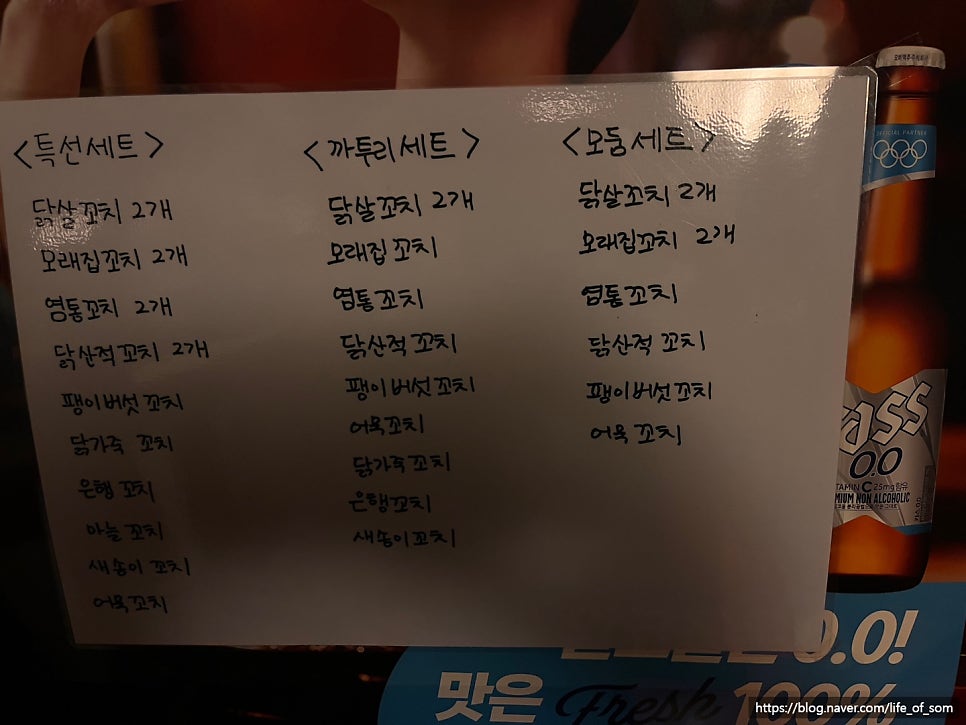 <특선세트>
닭살꼬치 2개
모래집꼬치 2개
염통꼬치 2개
닭산적꼬치 2개
팽이버섯꼬치
닭가죽 꼬치
은행꼬치
마늘꼬치
새송이꼬치
어묵꼬치
<까투리세트>
닭살꼬치 2개
모래집꼬치
염통꼬치
닭산적꼬치
팽이버섯꼬치
어묵꼬치
닭가죽꼬치
은행꼬치
새송이꼬치
<모둠세트>
닭살꼬치 2개
모래집꼬치 2개
염통꼬치
닭산적 꼬치
팽이버섯꼬치
어묵 꼬치
OFFICIAL PARTNER
ass
0.0
TAMIN C 25mg함유
MIUM NON ALCOHOLIC
0.0!
맛은 Fresh 100%
https://blog.naver.com/life_of_som